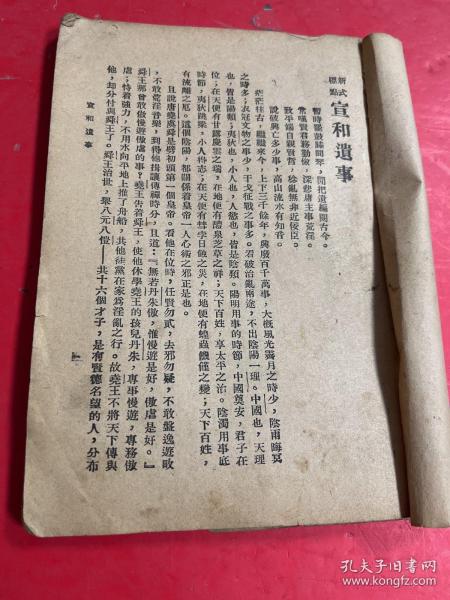 新式
標點
宣和遺事
暫時罷鼓膝間琴，閒把遺編閱古今。
常嘆賢君務勤儉，深悲庸主事荒淫。
致平端自親賢哲，稔亂無非近佞臣。
說破興亡多少事，高山流水有知音。
茫茫往古，繼繼來今，上下三千餘年，興廢百千萬事，大概風光霽月之時少，陰雨晦冥
之時多；衣冠文物之事少，干戈征戰之事多。看破治亂兩途，不出陰陽一理。中國也，天理
也，皆是陽類；夷狄也，小人也，人慾也，皆是陰類。陽明用事的時節，中國奠安，君子在
位，在天便有甘露慶雲之瑞，在地便有醴泉芝草之祥；天下百姓，享太平之治。陰濁用事底
時節，夷狄跳梁，小人得志；在天便有彗孛日蝕之災，在地便有蝗蟲饑饉之變；天下百姓，
有流離之厄。這個陰陽，都關係着皇帝一人心術之邪正是也。
且說唐堯虞舜是劈初頭第一個皇帝。看他在位時，任賢勿貳，去邪勿疑，不敢盤逸遊畋
，不敢荒淫音樂，到得他揖讓傳禪時分，且道：『無若丹朱傲，惟慢遊是好，傲虐是好。』
舜王那曾敢傲慢遊傲虐的事？堯王告着舜王，使他休學堯王的孩兒丹朱，專事慢遊，專務傲
虐；恃着強力，不用水向平地上推了舟船，共他徒黨在家爲淫亂之行。故堯王不將天下傳與
他，却分付與舜王了。舜王治世，舉八元八愷——共十六個才子，是有賢德名望的人，分布
宣和遺事
一
孔夫子旧书网